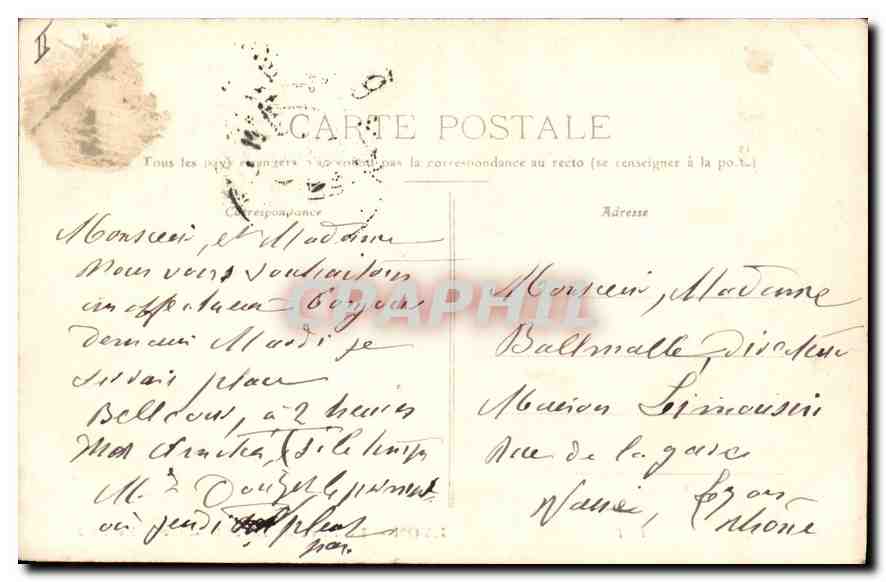 II
CARTE POSTALE
Tous les pays étrangers n'acceptent pas la correspondance au recto (se renseigner à la poste)
Correspondance
Monsieur, et Madame
Nous vous souhaitons
un affectueux bonjour
demain Mardi je
serais place
Bellcour, à 2 heures
Mes Amitiés (si le temps
le permet
ou jeudi
pleut
pas.
Adresse
Monsieur, Madame
Ballmalle, Directeur
Maison Limousin
Rue de la gare
Vaise, Lyon
Rhône
CPAPHIL